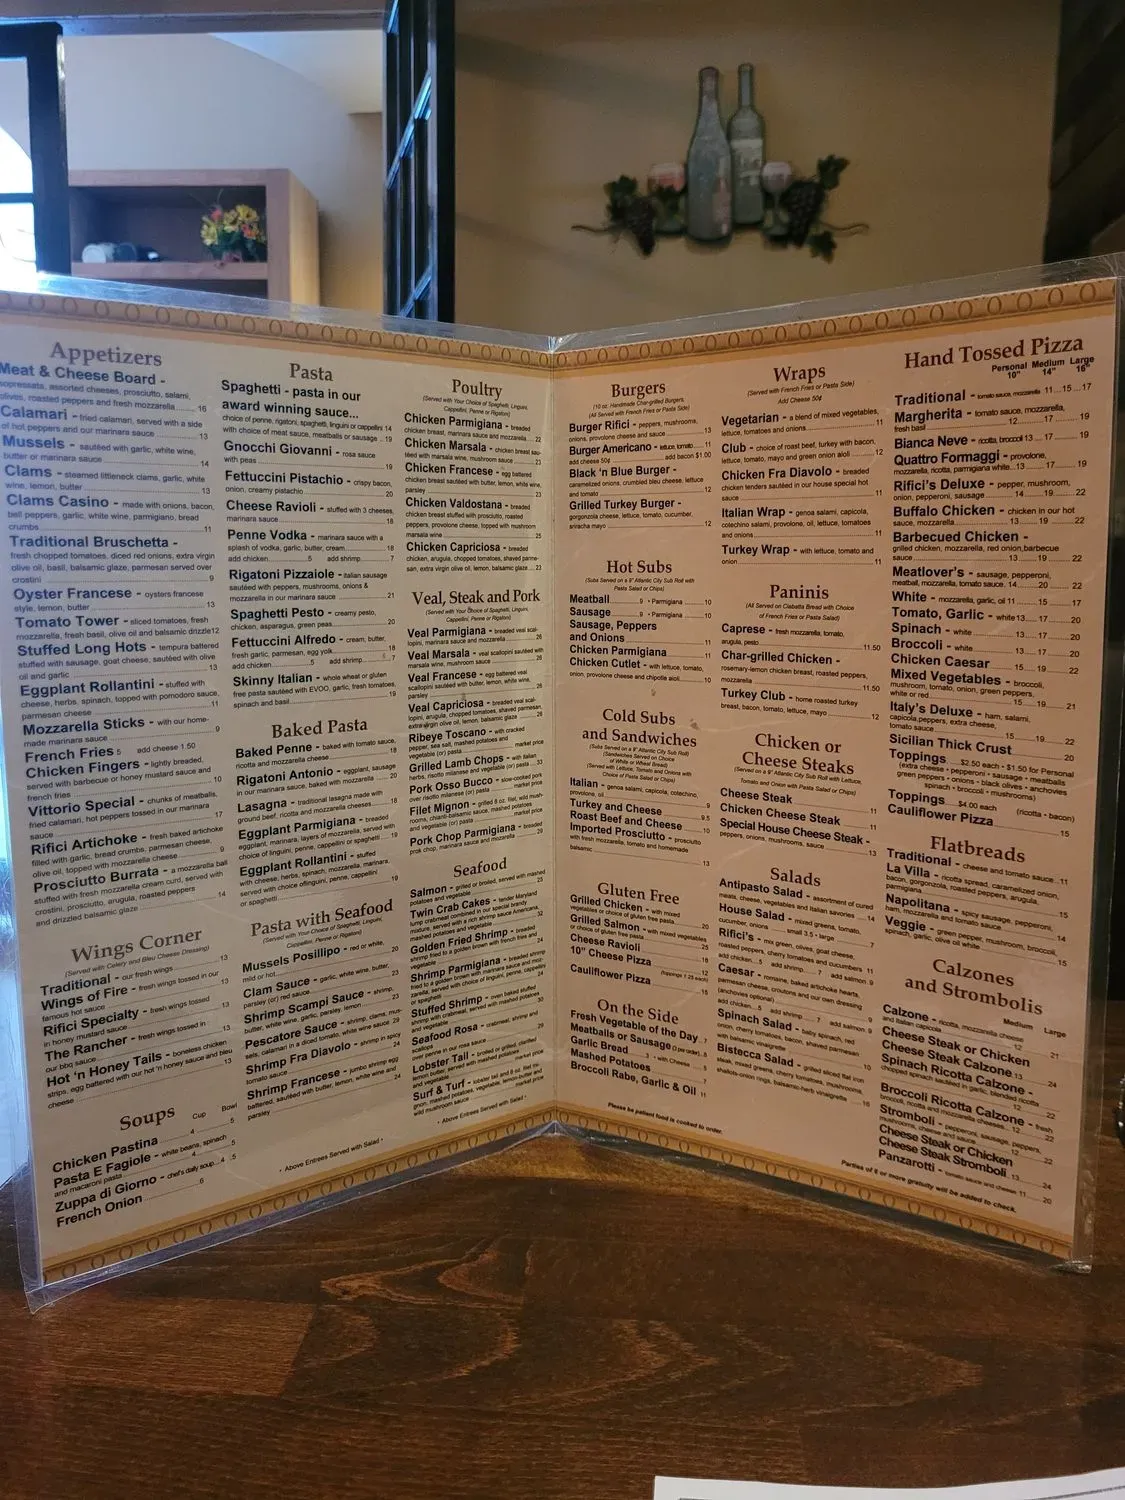 Appetizers
Meat & Cheese Board -
sopressata, assorted cheeses, prosciutto, salami,
olives, roasted peppers and fresh mozzarella 16
Calamari - fried calamari, served with a side
of hot peppers and our marinara sauce 13
Mussels - sautéed with garlic, white wine,
butter or marinara sauce 14
Clams - steamed littleneck clams, garlic, white
wine, lemon, butter 13
Clams Casino - made with onions, bacon,
bell peppers, garlic, white wine, parmigiano, bread
crumbs 11
Traditional Bruschetta -
fresh chopped tomatoes, diced red onions, extra virgin
olive oil, basil, balsamic glaze, parmesan served over
crostini 9
Oyster Francese - oysters francese
style, lemon, butter 13
Tomato Tower - sliced tomatoes, fresh
mozzarella, fresh basil, olive oil and balsamic drizzle 12
Stuffed Long Hots - tempura battered
stuffed with sausage, goat cheese, sautéed with olive
oil and garlic 13
Eggplant Rollantini - stuffed with
cheese, herbs, spinach, topped with pomodoro sauce,
parmesan cheese 9
Mozzarella Sticks - with our home-
made marinara sauce 9
French Fries 5 add cheese 1.50
Chicken Fingers - lightly breaded,
served with barbecue or honey mustard sauce and
french fries 10
Vittorio Special - chunks of meatballs,
fried calamari, hot peppers tossed in our marinara
sauce 17
Rifici Artichoke - fresh baked artichoke
filled with garlic, bread crumbs, parmesan cheese,
olive oil, topped with mozzarella cheese 9
Prosciutto Burrata - a mozzarella ball
stuffed with fresh mozzarella cream curd, served with
crostini, prosciutto, arugula, roasted peppers
and drizzled balsamic glaze 14
Wings Corner
(Served with Celery and Bleu Cheese Dressing)
Traditional - our fresh wings 13
Wings of Fire - fresh wings tossed in our
famous hot sauce 13
Rifici Specialty - fresh wings tossed
in honey mustard sauce 13
The Rancher - fresh wings tossed in
our bbq sauce 13
Hot 'n Honey Tails - boneless chicken
strips, egg battered with our hot 'n honey sauce and bleu
cheese 13
Soups
Cup Bowl
Chicken Pastina 4 5
Pasta E Fagiole - white beans, spinach
and macaroni pasta 4 5
Zuppa di Giorno - chef's daily soup 4 5
French Onion 6
Pasta
Spaghetti - pasta in our
award winning sauce...
choice of penne, rigatoni, spaghetti, linguini or cappellini 14
with choice of meat sauce, meatballs or sausage 19
Gnocchi Giovanni - rosa sauce
with peas 19
Fettuccini Pistachio - crispy bacon,
onion, creamy pistachio 20
Cheese Ravioli - stuffed with 3 cheeses,
marinara sauce 18
Penne Vodka - marinara sauce with a
splash of vodka, garlic, butter, cream 18
add chicken 5 add shrimp 7
Rigatoni Pizzaiole - italian sausage
sautéed with peppers, mushrooms, onions &
mozzarella in our marinara sauce 21
Spaghetti Pesto - creamy pesto,
chicken, asparagus, green peas 20
Fettuccini Alfredo - cream, butter,
fresh garlic, parmesan, egg yolk 18
add chicken 5 add shrimp 7
Skinny Italian - whole wheat or gluten
free pasta sautéed with EVOO, garlic, fresh tomatoes,
spinach and basil 19
Baked Pasta
Baked Penne - baked with tomato sauce,
ricotta and mozzarella cheese 18
Rigatoni Antonio - eggplant, sausage
in our marinara sauce, baked with mozzarella 20
Lasagna - traditional lasagna made with
ground beef, ricotta and mozzarella cheeses 18
Eggplant Parmigiana - breaded
eggplant, marinara, layers of mozzarella, served with
choice of linguini, penne, cappellini or spaghetti 19
Eggplant Rollantini - stuffed
with cheese, herbs, spinach, mozzarella, marinara,
served with choice of linguini, penne, cappellini
or spaghetti 19
Pasta with Seafood
(Served with Your Choice of Spaghetti, Linguini,
Cappellini, Penne or Rigatoni)
Mussels Posillipo - red or white,
mild or hot 20
Clam Sauce - garlic, white wine, butter,
parsley (or) red sauce 23
Shrimp Scampi Sauce - shrimp,
butter, white wine, garlic, parsley, lemon 23
Pescatore Sauce - shrimp, clams, mus-
sels, calamari in a diced tomato, white wine sauce 29
Shrimp Fra Diavolo - shrimp in spicy
tomato sauce 24
Shrimp Francese - jumbo shrimp egg
battered, sautéed with butter, lemon, white wine and
parsley 24
• Above Entrees Served with Salad •
Poultry
(Served with Your Choice of Spaghetti, Linguini,
Cappellini, Penne or Rigatoni)
Chicken Parmigiana - breaded
chicken breast, marinara sauce and mozzarella 22
Chicken Marsala - chicken breast sau-
téed with marsala wine, mushroom sauce 23
Chicken Francese - egg battered
chicken breast sautéed with butter, lemon, white wine,
parsley 23
Chicken Valdostana - breaded
chicken breast stuffed with prosciutto, roasted
peppers, provolone cheese, topped with mushroom
marsala wine 25
Chicken Capriciosa - breaded
chicken, arugula, chopped tomatoes, shaved parme-
san, extra virgin olive oil, lemon, balsamic glaze 23
Veal, Steak and Pork
(Served with Your Choice of Spaghetti, Linguini,
Cappellini, Penne or Rigatoni)
Veal Parmigiana - breaded veal scal-
lopini, marinara sauce and mozzarella 26
Veal Marsala - veal scallopini sautéed with
marsala wine, mushroom sauce 26
Veal Francese - egg battered veal
scallopini sautéed with butter, lemon, white wine,
parsley 26
Veal Capriciosa - breaded veal scal-
lopini, arugula, chopped tomatoes, shaved parmesan,
extra virgin olive oil, lemon, balsamic glaze 26
Ribeye Toscano - with cracked
pepper, sea salt, mashed potatoes and
vegetable (or) pasta market price
Grilled Lamb Chops - with italian
herbs, risotto milanese or vegetable (or) pasta 33
Pork Osso Bucco - slow-cooked pork
over risotto milanese (or) pasta market price
Filet Mignon - grilled 8 oz. filet, wild mush-
rooms, chianti-balsamic sauce, mashed potatoes
and vegetable (or) pasta market price
Pork Chop Parmigiana - breaded
pork chop, marinara sauce and mozzarella 29
Seafood
Salmon - grilled or broiled, served with mashed
potatoes and vegetable 25
Twin Crab Cakes - tender Maryland
lump crabmeat combined in our special brandy
mixture, served with a rich shrimp sauce Americana,
mashed potatoes and vegetable 32
Golden Fried Shrimp - breaded
shrimp fried to a golden brown with french fries and
vegetable 24
Shrimp Parmigiana - breaded shrimp
fried to a golden brown with marinara sauce and moz-
zarella, served with choice of linguini, penne, cappellini
or spaghetti
Stuffed Shrimp - oven baked stuffed
shrimp with crabmeat, served with mashed potatoes
and vegetable 30
Seafood Rosa - crabmeat, shrimp and
scallops
over penne in our rosa sauce 29
Lobster Tail - broiled or grilled, clarified
lemon butter, served with mashed potatoes
and vegetable market price
Surf & Turf - lobster tail and 8 oz. filet mi-
gnon, mashed potatoes, vegetable, lemon-butter and
wild mushroom sauce market price
• Above Entrees Served with Salad •
Burgers
(10 oz. Handmade Char-grilled Burgers,
(All Served with French Fries or Pasta Side)
Burger Rifici - peppers, mushrooms,
onions, provolone cheese and sauce 13
Burger Americano - lettuce, tomato 11
add cheese 50¢ add bacon $1.00
Black 'n Blue Burger -
caramelized onions, crumbled bleu cheese, lettuce
and tomato 12
Grilled Turkey Burger -
gorgonzola cheese, lettuce, tomato, cucumber,
sriracha mayo 12
Hot Subs
(Subs Served on a 9" Atlantic City Sub Roll with
Pasta Salad or Chips)
Meatball 9 • Parmigiana 10
Sausage 9 • Parmigiana 10
Sausage, Peppers
and Onions 11
Chicken Parmigiana 11
Chicken Cutlet - with lettuce, tomato,
onion, provolone cheese and chipotle aioli 10
Cold Subs
and Sandwiches
(Subs Served on a 9" Atlantic City Sub Roll)
(Sandwiches Served on Choice
of White or Wheat Bread)
(Served with Lettuce, Tomato and Onions with
Choice of Pasta Salad or Chips)
Italian - genoa salami, capicola, cotechino,
provolone, oil 9
Turkey and Cheese 9.5
Roast Beef and Cheese 10
Imported Prosciutto - prosciutto
with fresh mozzarella, tomato and homemade
balsamic 13
Gluten Free
Grilled Chicken - with mixed
vegetables or choice of gluten free pasta 20
Grilled Salmon - with mixed vegetables
or choice of gluten free pasta 25
Cheese Ravioli 18
10" Cheese Pizza 12
(toppings 1.25 each)
Cauliflower Pizza 15
On the Side
Fresh Vegetable of the Day 7
Meatballs or Sausage (3 per order) 8
Garlic Bread 3 • with Cheese 5
Mashed Potatoes 7
Broccoli Rabe, Garlic & Oil 11
Please be patient food is cooked to order.
Wraps
(Served with French Fries or Pasta Side)
Add Cheese 50¢
Vegetarian - a blend of mixed vegetables,
lettuce, tomatoes and onions 11
Club - choice of roast beef, turkey with bacon,
lettuce, tomato, mayo and green onion aioli 12
Chicken Fra Diavolo - breaded
chicken tenders sautéed in our house special hot
sauce 11
Italian Wrap - genoa salami, capicola,
cotechino salami, provolone, oil, lettuce, tomatoes
and onions 11
Turkey Wrap - with lettuce, tomato and
onion 11
Paninis
(All Served on Ciabatta Bread with Choice
of French Fries or Pasta Salad)
Caprese - fresh mozzarella, tomato,
arugula, pesto 11.50
Char-grilled Chicken -
rosemary-lemon chicken breast, roasted peppers,
mozzarella 11.50
Turkey Club - home roasted turkey
breast, bacon, tomato, lettuce, mayo 12
Chicken or
Cheese Steaks
(Served on a 9" Atlantic City Sub Roll with Lettuce,
Tomato and Onion with Pasta Salad or Chips)
Cheese Steak 11
Chicken Cheese Steak 11
Special House Cheese Steak -
peppers, onions, mushrooms, sauce 13
Salads
Antipasto Salad - assortment of cured
meats, cheese, vegetables and Italian savories 14
House Salad - mixed greens, tomato,
cucumber, onions small 3.5 • large 7
Rifici's - mix green, olives, goat cheese,
roasted peppers, cherry tomatoes and cucumbers 11
add chicken 5 add shrimp 7 add salmon 9
Caesar - romaine, baked artichoke hearts,
parmesan cheese, croutons and our own dressing
(anchovies optional) 9
add chicken 5 add shrimp 7 add salmon 9
Spinach Salad - baby spinach, red
onion, cherry tomatoes, bacon, shaved parmesan
with balsamic vinaigrette 10
Bistecca Salad - grilled sliced flat iron
steak, mixed greens, cherry tomatoes, mushrooms,
shallote-onion rings, balsamic-herb vinaigrette 16
Hand Tossed Pizza
Personal Medium Large
10" 14" 16"
Traditional - tomato sauce, mozzarella 11 15 17
Margherita - tomato sauce, mozzarella,
fresh basil 12 17 19
Bianca Neve - ricotta, broccoli 13 17 19
Quattro Formaggi - provolone,
mozzarella, ricotta, parmigiana white 13 17 19
Rifici's Deluxe - pepper, mushroom,
onion, pepperoni, sausage 14 19 22
Buffalo Chicken - chicken in our hot
sauce, mozzarella 13 19 22
Barbecued Chicken -
grilled chicken, mozzarella, red onion, barbecue
sauce 13 19 22
Meatlover's - sausage, pepperoni,
meatball, mozzarella, tomato sauce 14 20 22
White - mozzarella, garlic, oil 11 15 17
Tomato, Garlic - white 13 17 20
Spinach - white 13 17 20
Broccoli - white 13 17 20
Chicken Caesar 15 19 22
Mixed Vegetables - broccoli,
mushroom, tomato, onion, green peppers,
white or red 15 19 21
Italy's Deluxe - ham, salami,
capicola, peppers, extra cheese,
tomato sauce 15 19 22
Sicilian Thick Crust 20
Toppings $2.50 each - $1.50 for Personal
(extra cheese • pepperoni • sausage • meatballs
green peppers • onions • black olives • anchovies
spinach • broccoli • mushrooms)
Toppings $4.00 each
(ricotta - bacon)
Cauliflower Pizza 15
Flatbreads
Traditional - cheese and tomato sauce 11
La Villa - ricotta spread, caramelized onion,
bacon, gorgonzola, roasted peppers, arugula,
parmigiana 15
Napolitana - spicy sausage, pepperoni,
ham, mozzarella and tomato sauce 14
Veggie - green pepper, mushroom, broccoli,
spinach, garlic, olive oil white 15
Calzones
and Strombolis
Medium Large
Calzone - ricotta, mozzarella cheese
and italian capicola 12 21
Cheese Steak or Chicken
Cheese Steak Calzone 13 24
Spinach Ricotta Calzone -
chopped spinach sautéed in garlic, blended ricotta
12 22
Broccoli Ricotta Calzone - fresh
broccoli, ricotta and mozzarella cheeses 12 22
Stromboli - pepperoni, sausage, peppers,
mushrooms, cheese and sauce 12 22
Cheese Steak or Chicken
Cheese Steak Stromboli 13 24
Panzarotti - tomato sauce and cheese 11 20
Parties of 8 or more gratuity will be added to check.